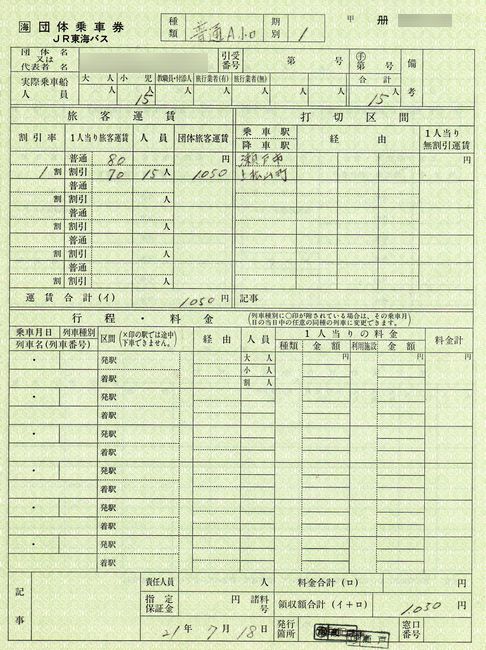 海 団体乗車券
JR東海バス
種類 普通A小口 期別 1 甲 册
団体名又は代表者名 引受番号 第 号 手 第 号 備考
実際乗車船人員 大人 小児 教職員・付添人 旅行業者(有) 旅行業者(無) 合計
人 15人 人 人 人 15人
旅客運賃 打切区間
割引率 1人当り旅客運賃 人員 団体旅客運賃 乗車駅 降車駅 経由 1人当り無割引運賃
普通 80 円 瀬戸市 円
1割 割引 70 15人 1050
普通
割 割引 人
普通
割 割引 人
普通
割 割引 人
普通
割 割引 人
運賃合計(イ) 1050円 記事
行程・料金 (列車種別に○印が附されている場合は、その乗車月日の当日中の任意の同種の列車に変更できます。)
乗車月日 列車種別 区間 (×印の駅では途中下車できません。) 経由 人員 1人当りの料金 料金計
列車名(列車番号) 種類 金額 利用施設 金額
・ 発駅 大人 円 円 円
着駅 小人
割人
・ 発駅
着駅
・ 発駅
着駅
・ 発駅
着駅
・ 発駅
着駅
・ 発駅
着駅
記事 責任人員 人 料金合計(ロ) 円
指定保証金 円 諸料号 領収額合計(イ+ロ) 1,050円
21年7月18日 発行箇所 窓口番号